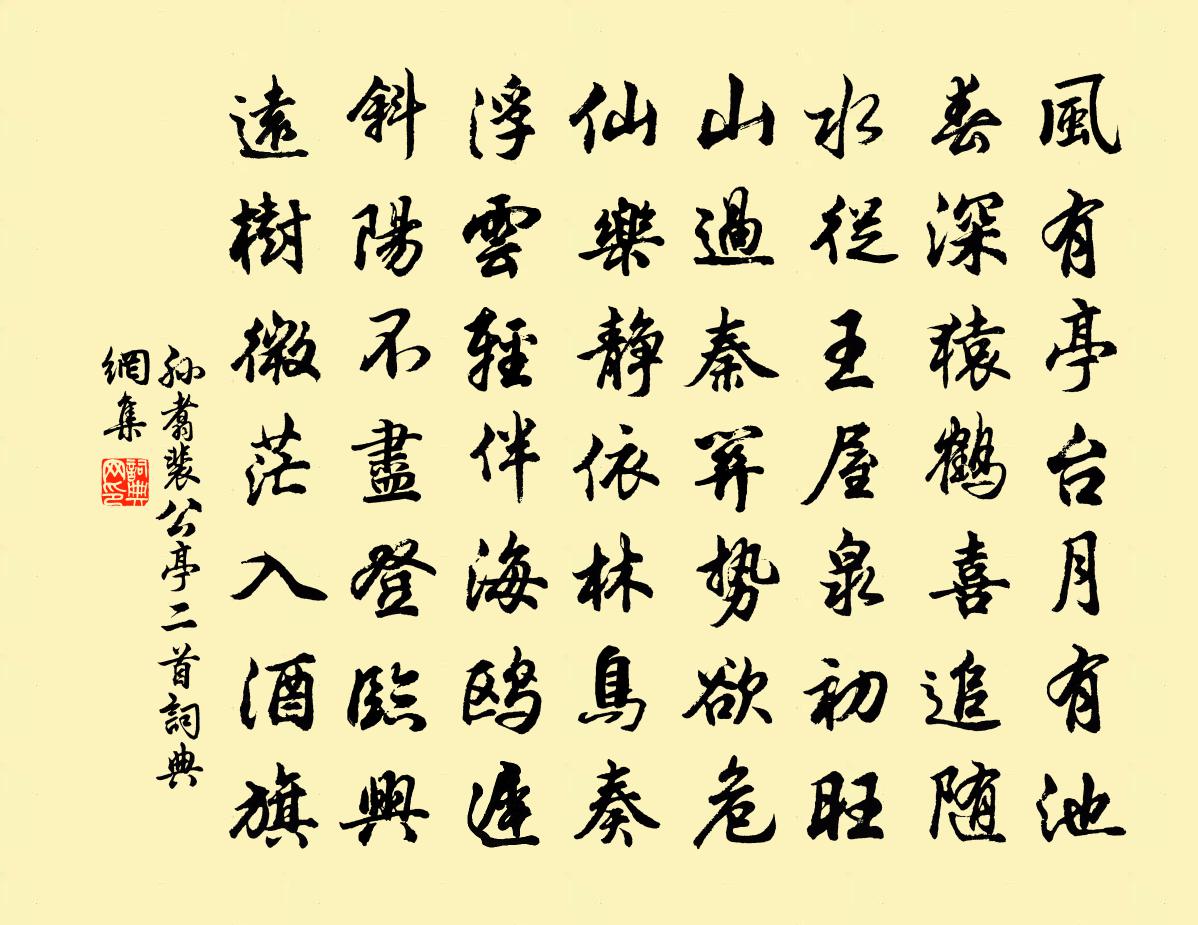 風有亭台月有池
春深猿鶴喜追随
水從王屋泉初旺
山過秦関勢欲危
仙樂静依林鳥奏
浮雲輕伴海鷗遲
斜陽不盡登臨興
遠樹微茫入酒旗
孙翥裴公亭二首詞典
網集
詞典
网印